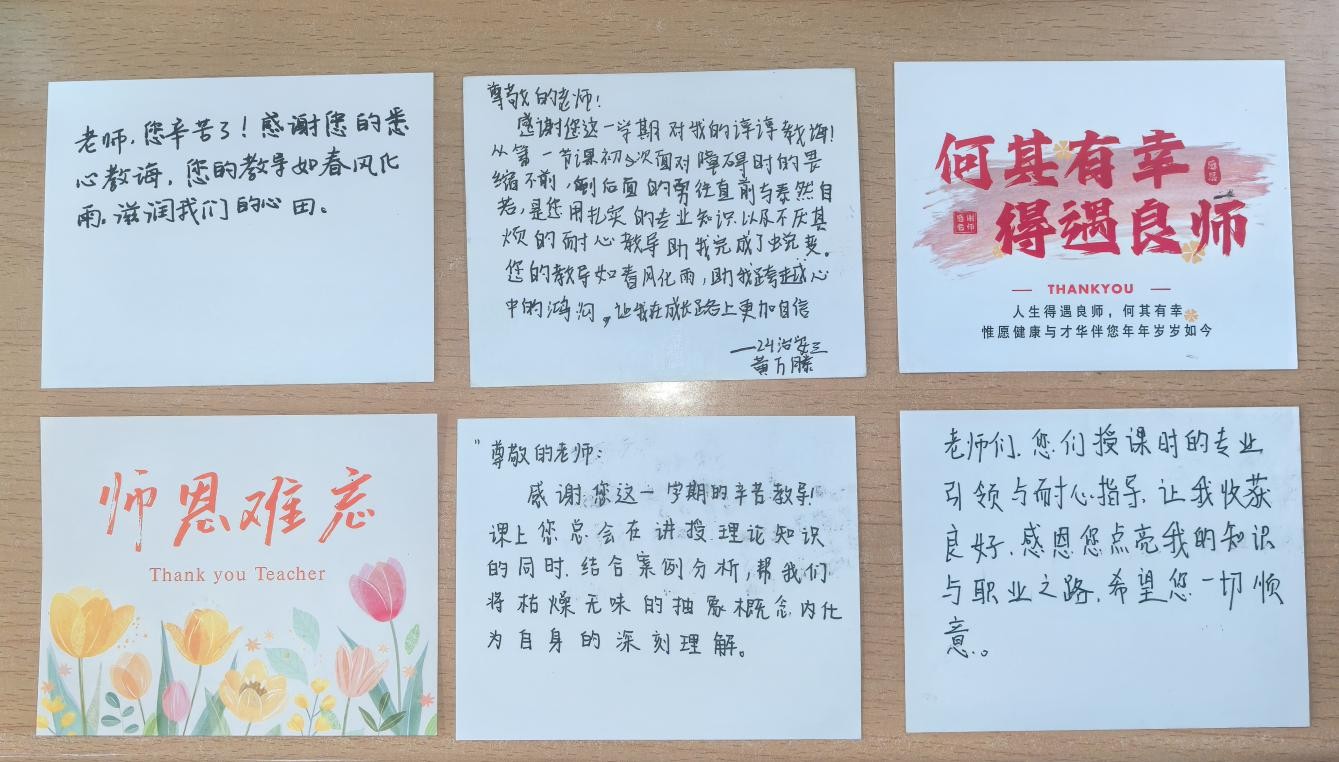 老师,您辛苦了!感谢您的悉
心教诲,您的教导如春风化
雨,滋润我们的心田。
尊敬的老师!
感谢您这一学期对我的谆谆教诲!
从第一节课初次面对障碍时的畏
缩不前,到后面的勇往直前与泰然自
若,是您用扎实的专业知识以及不厌其
烦的耐心教导助我完成了蜕变。
您的教导如春风化雨,助我跨越心
中的鸿沟,让我在成长路上更加自信
—24治安三
黄万滕
何其有幸
得遇良师
感谢老师
THANKYOU
人生得遇良师,何其有幸
惟愿健康与才华伴您年年岁岁如今
师恩难忘
Thank you Teacher
"尊敬的老师:
感谢您这一学期的辛苦教导!
课上您总会在讲授理论知识
的同时,结合案例分析,帮我们
将枯燥无味的抽象概念内化
为自身的深刻理解。
老师们,您们授课时的专业
引领与耐心指导,让我收获
良好,感恩您点亮我的知识
与职业之路,希望您一切顺
意。